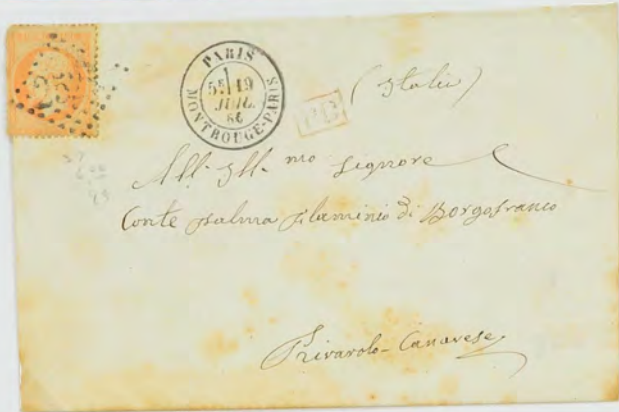 PARIS
5E 19
JUIL.
MONTROUGE-PARIS
(Italie)
PD
All' Ill.mo Signore
Conte Palma Flaminio di Borgofranco
Rivarolo-Canavese